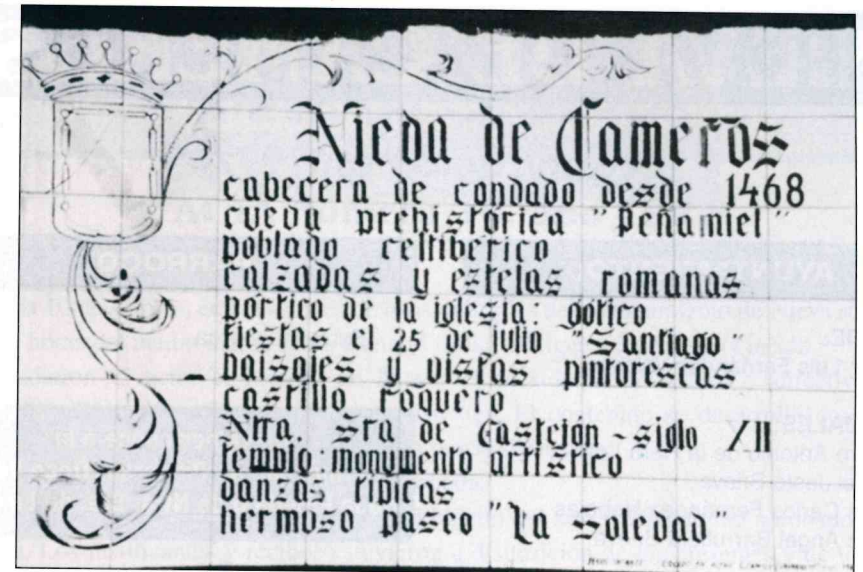 Nieva de Cameros
cabecera de condado desde 1468
cueva prehistórica "Peñamiel"
poblado celtibérico
calzadas y estelas romanas
pórtico de la iglesia: gótico
fiestas el 25 de julio "Santiago"
paisajes y vistas pintorescas
castillo roquero
Ntra. Sra. de Castejón - siglo
templo monumento artístico
danzas típicas
hermoso paseo "La Soledad"